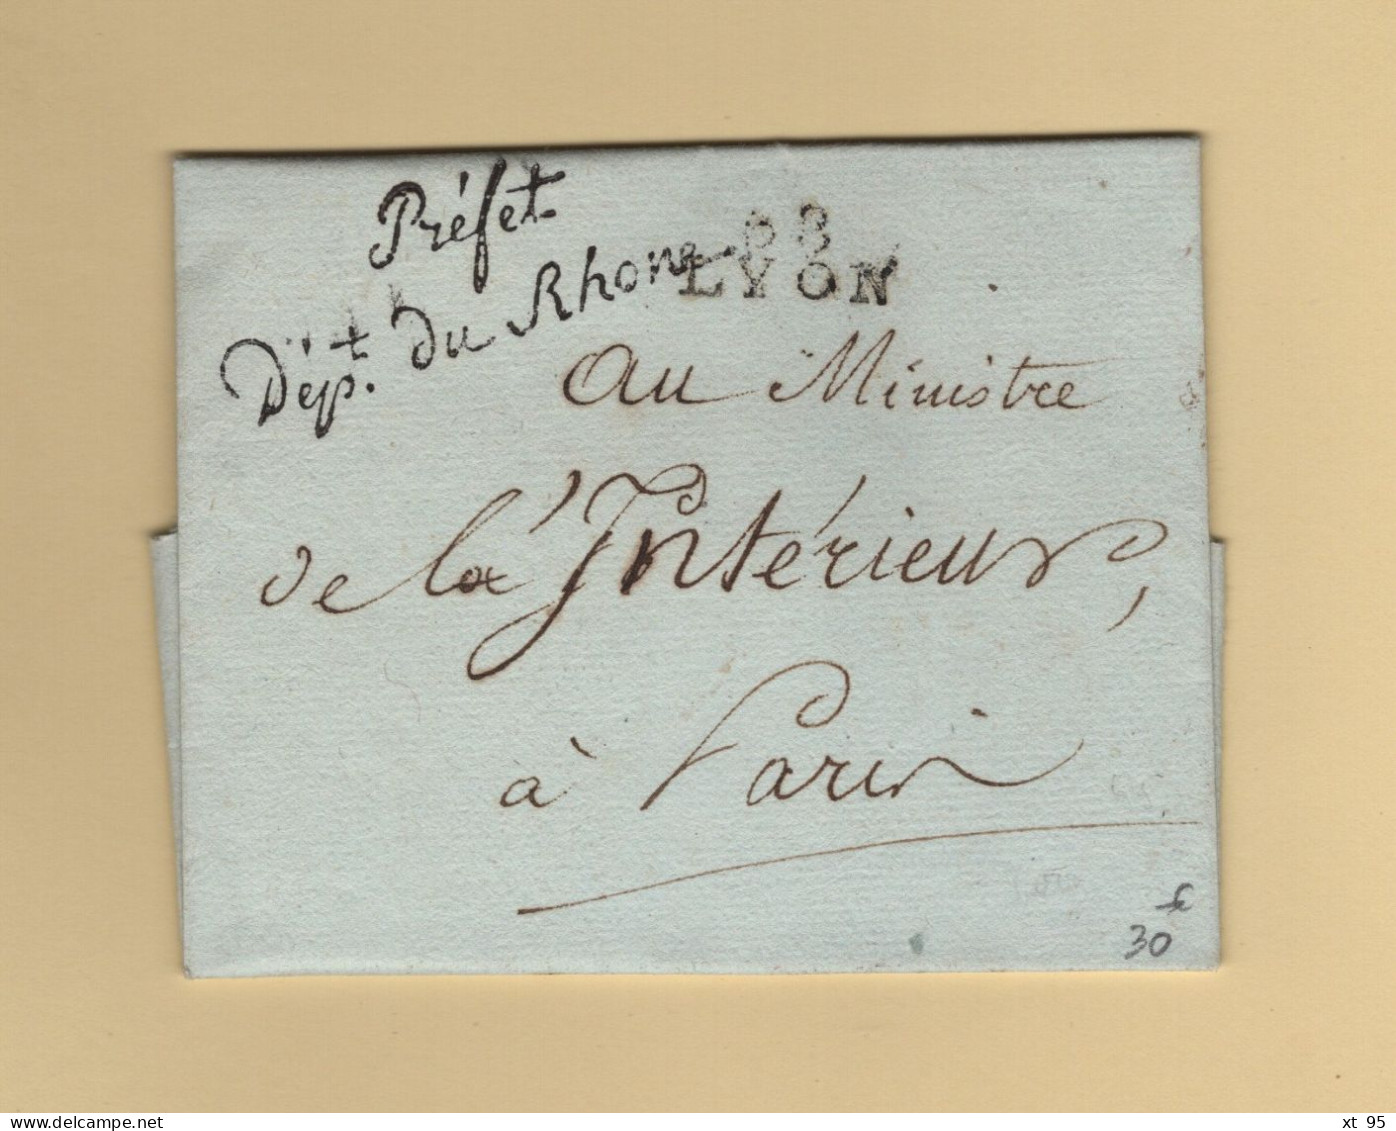 Préfet
Dépt. du Rhone
68
LYON
au Ministre
de la' Intérieur,
à Paris
30
delcampe.net
xt 95